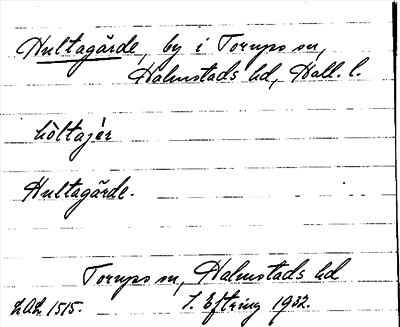 Hultagärde, by i Torups sn,
Halmstads hd, Hall. l.
hòltajèr
Hultagärde.
Torups sn, Halmstads hd
LAL 1515. S. Eftring 1932.